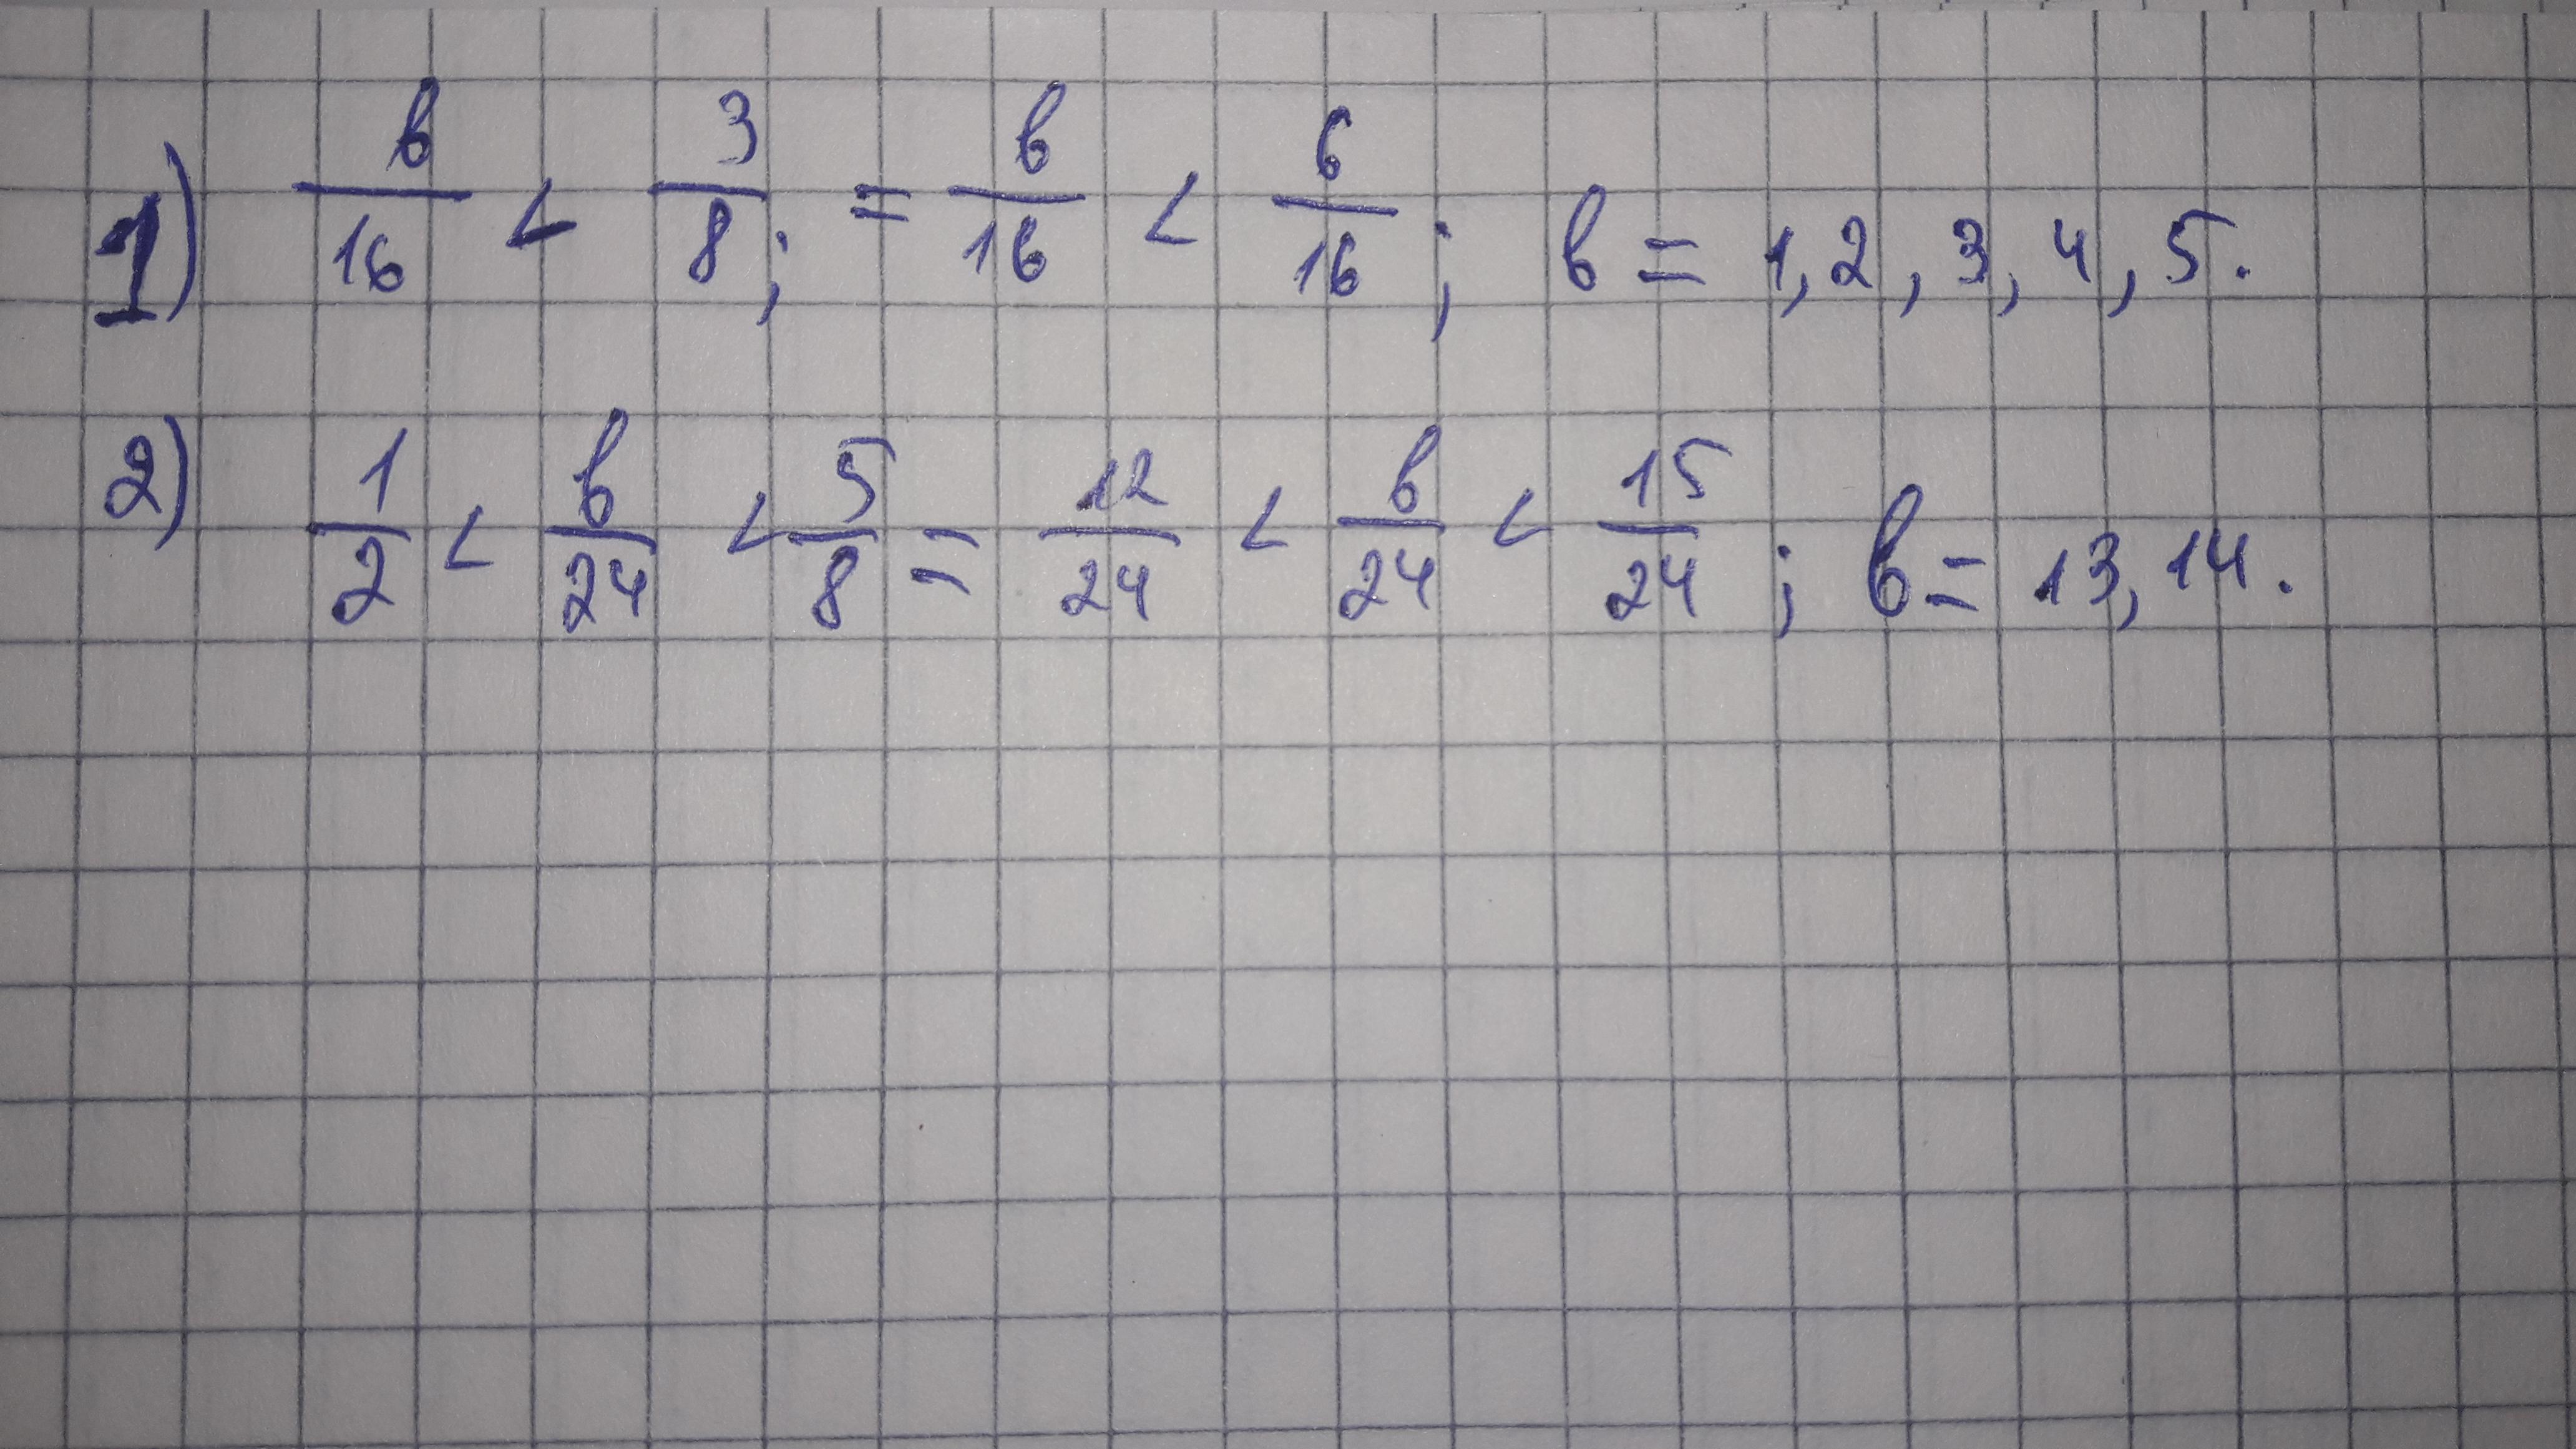 1) b/16 < 3/8; = b/16 < 6/16; b = 1, 2, 3, 4, 5.
2) 1/2 < b/24 < 5/8 = 12/24 < b/24 < 15/24; b = 13, 14.